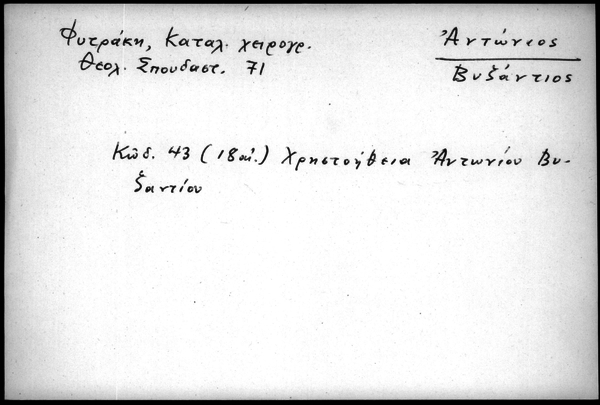 Φυτράκη, Καταλ. χειρογρ.
Θεολ. Σπουδαστ. 71
Ἀντώνιος
Βυζάντιος
Κώδ. 43 (18 αἰ.) Χρηστοήθεια Ἀντωνίου Βυ-
ζαντίου